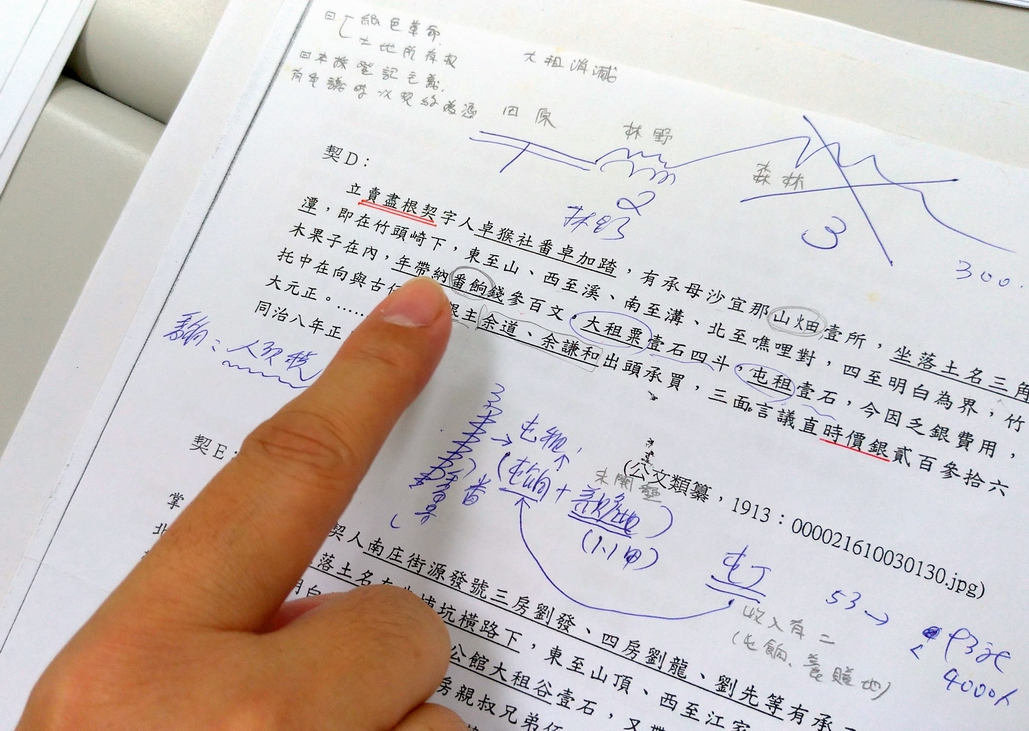 日
紙色革命
土地所有权
日本後登記主義
有爭議時以契約為憑
大租消滅
田原
林野
森林
2
林野
3
300
契D：
立賣盡根契字人卓猴社番卓加踏，有承母沙宜那山畑壹所，坐落土名三角
潭，即在竹頭崎下，東至山、西至溪、南至溝、北至噍哩對，四至明白為界，竹
木果子在內，年帶納番餉錢參百文，大租粟壹石四斗，屯租壹石，今因乏銀費用，
托中在向與古
主余道、余謙和出頭承買，三面言議直時價銀貳百參拾六
大元正。……
同治八年正
(公文類纂，1913：000021610030130.jpg)
餉：人頭稅
屯租
(屯餉+養贍地)
未開墾
(1.1甲)
屯丁
53→
4000人
收入有二
(屯餉、養贍地)
契E：
掌
契人南庄街源發號三房劉發、四房劉龍、劉先等有承
北
落土名
坑橫路下，東至山頂、西至江家
明白
公館大租谷壹石，又帶
房親叔兄弟